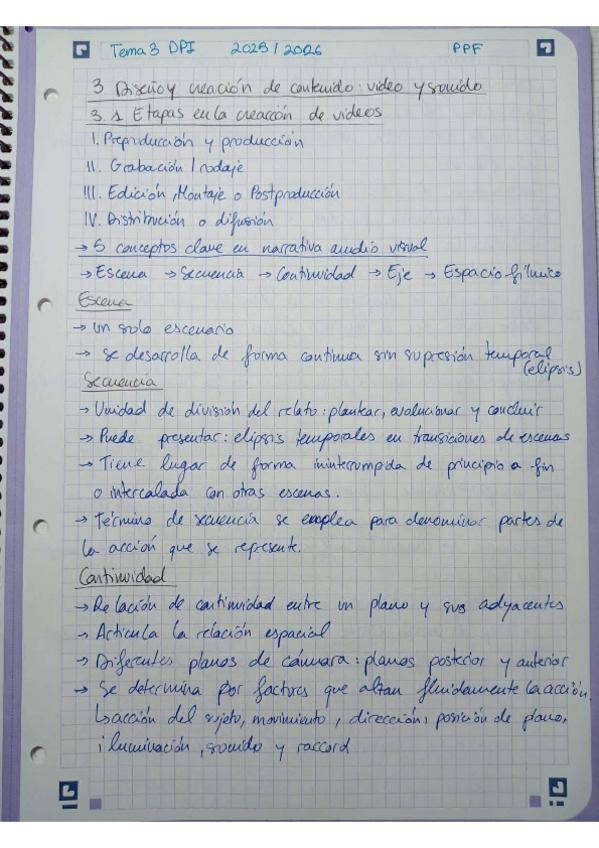 Tema 3 DPI 2025/2026 PPF
3 Diseño y creación de contenido: video y sonido
3.1 Etapas en la creación de videos
I. Preproducción y producción
II. Grabación / rodaje
III. Edición, Montaje o Postproducción
IV. Distribución o difusión
→ 5 conceptos clave en narrativa audio visual
→ Escena → Secuencia → Continuidad → Eje → Espacio fílmico
Escena
→ un solo escenario
→ Se desarrolla de forma continua sin supresión temporal
(elipsis)
Secuencia
→ Unidad de división del relato: plantear, evolucionar y concluir
→ Puede presentar: elipsis temporales en transiciones de escenas
→ Tiene lugar de forma ininterrumpida de principio a fin
o intercalada con otras escenas.
→ Término de secuencia se emplea para denominar partes de
la acción que se represente.
Continuidad
→ Relación de continuidad entre un plano y sus adyacentes
→ Articula la relación espacial
→ Diferentes planos de cámara: planos posterior y anterior
→ Se determina por factores que fluidamente la acción.
↳ acción del sujeto, movimiento, dirección, posición de plano,
iluminación, sonido y raccord